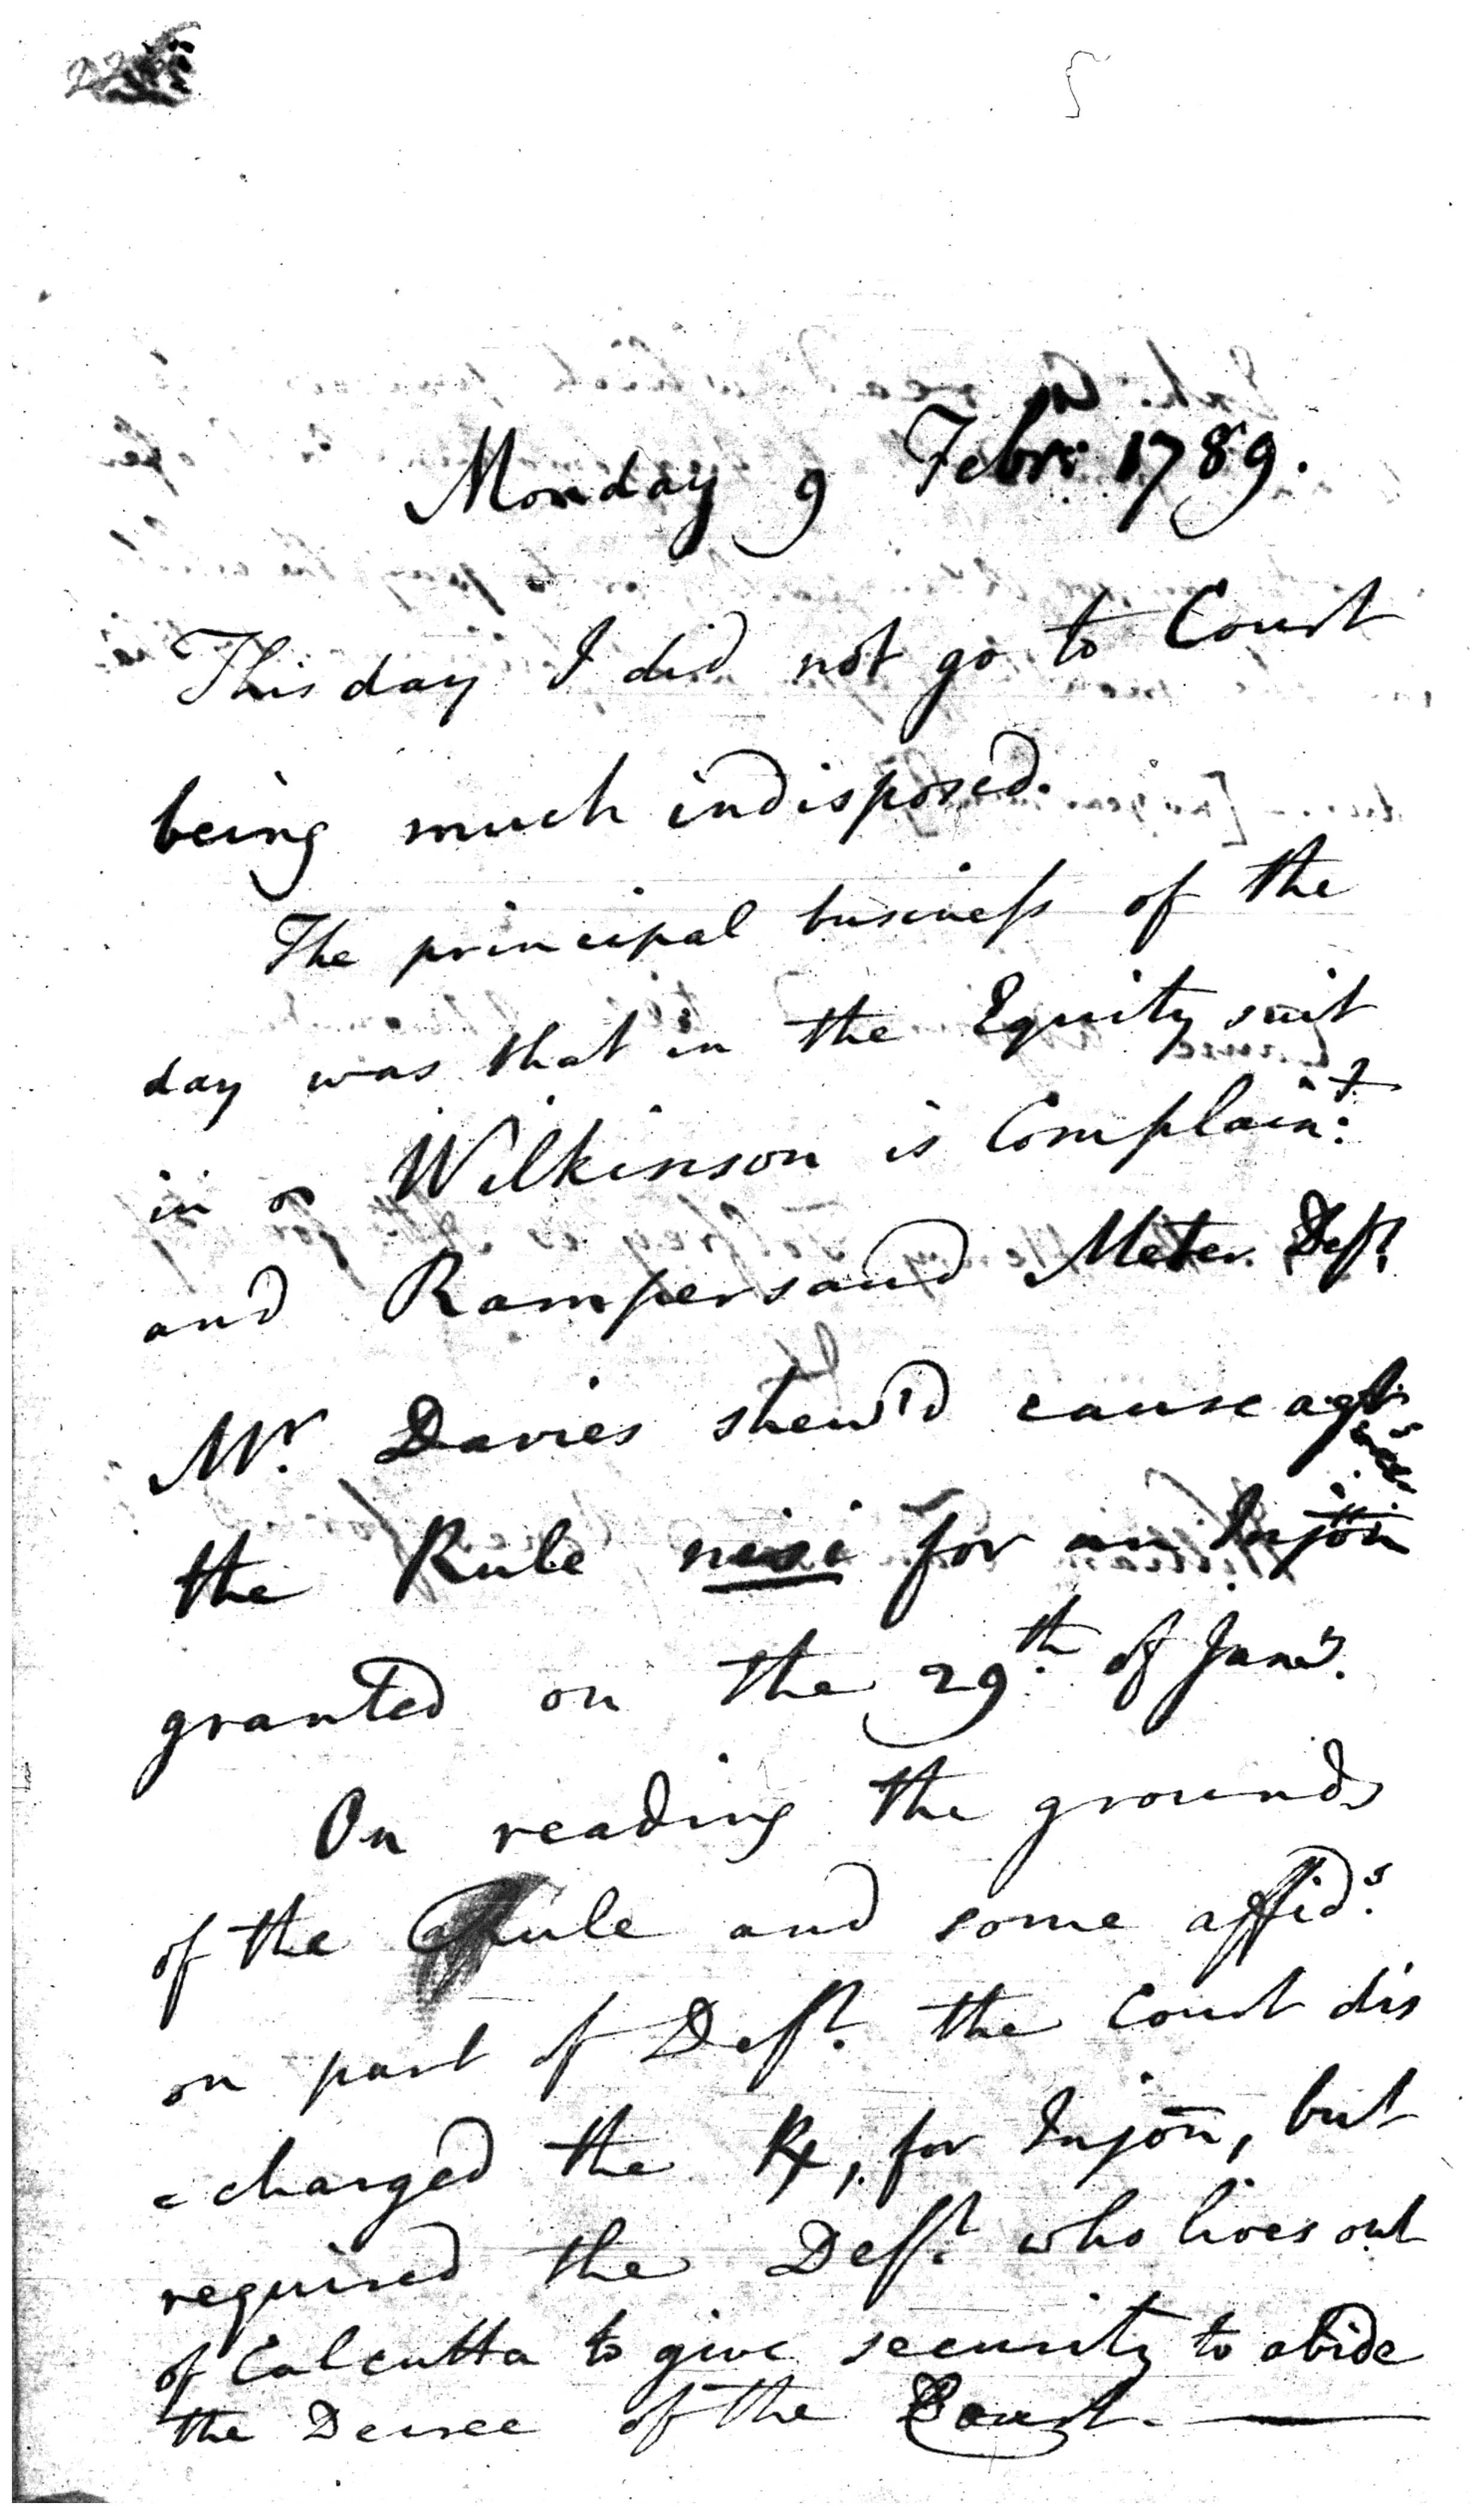 Monday 9 Febry 1789.
This day I did not go to Court
being much indisposed.
The principal business of the
day was that in the Equity suit
in Wilkinson is Complain:t
and Rampersaud Meter Deft
Mr. Davies shew'd cause agt
the Rule nisi for an Injōn
granted on the 29th of Jany.
On reading the grounds
of the Rule and some affids.
on part of Deft. the Court dis
=charged the R, for Injōn, but
required the Deft. who lives out
of Calcutta to give security to abide
the Decree of the Court.